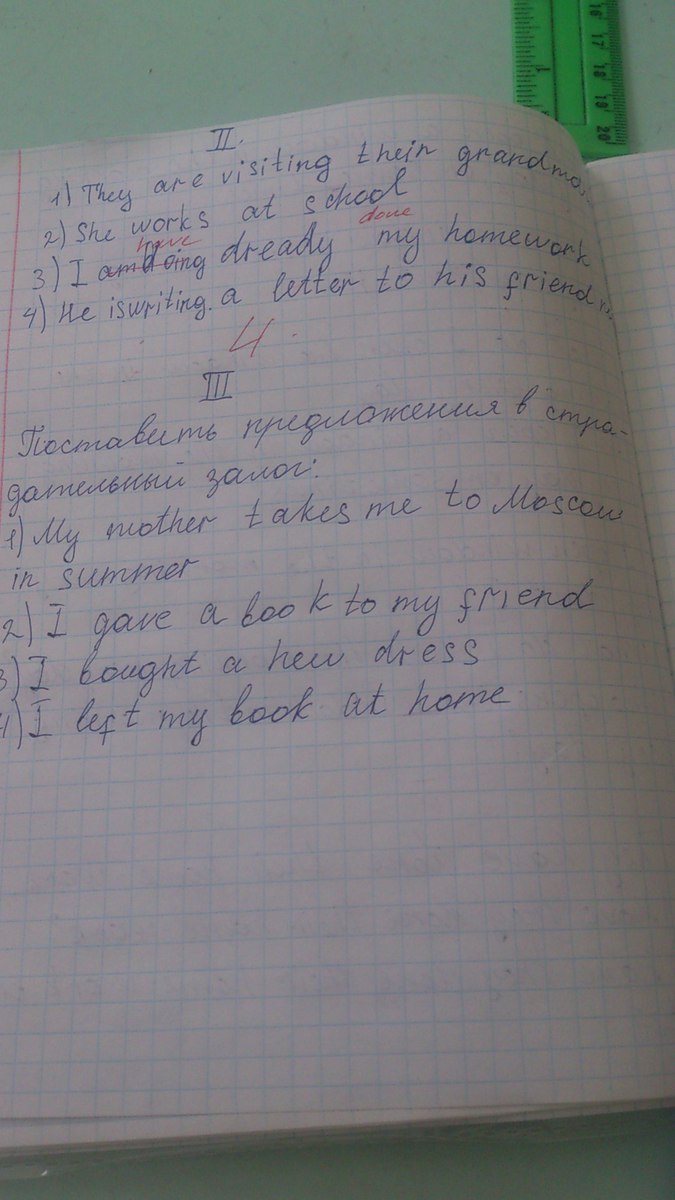 II.
1) They are visiting their
2) She works at school
have done
3) I am doing dready my homework
4) He iswriting. a letter to his friend
4
III
Поставить предложения в стра-
дательный залог:
1) My mother takes me to Moscow
in summer
2) I gave a book to my friend
3) I bought a new dress
4) I left my book at home
16 17 18 19 20